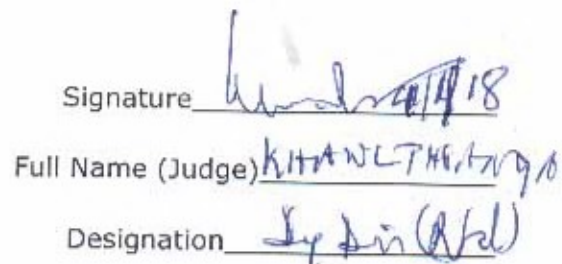 Signature 4/4/18
Full Name (Judge) KHAWLTHANGA
Designation Dy Dir (Rtd)